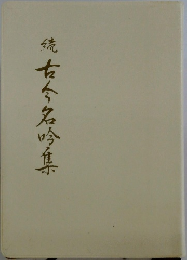 続
古今名吟集